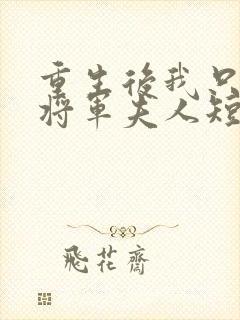 重生後我只
將軍夫人短
飛花齋